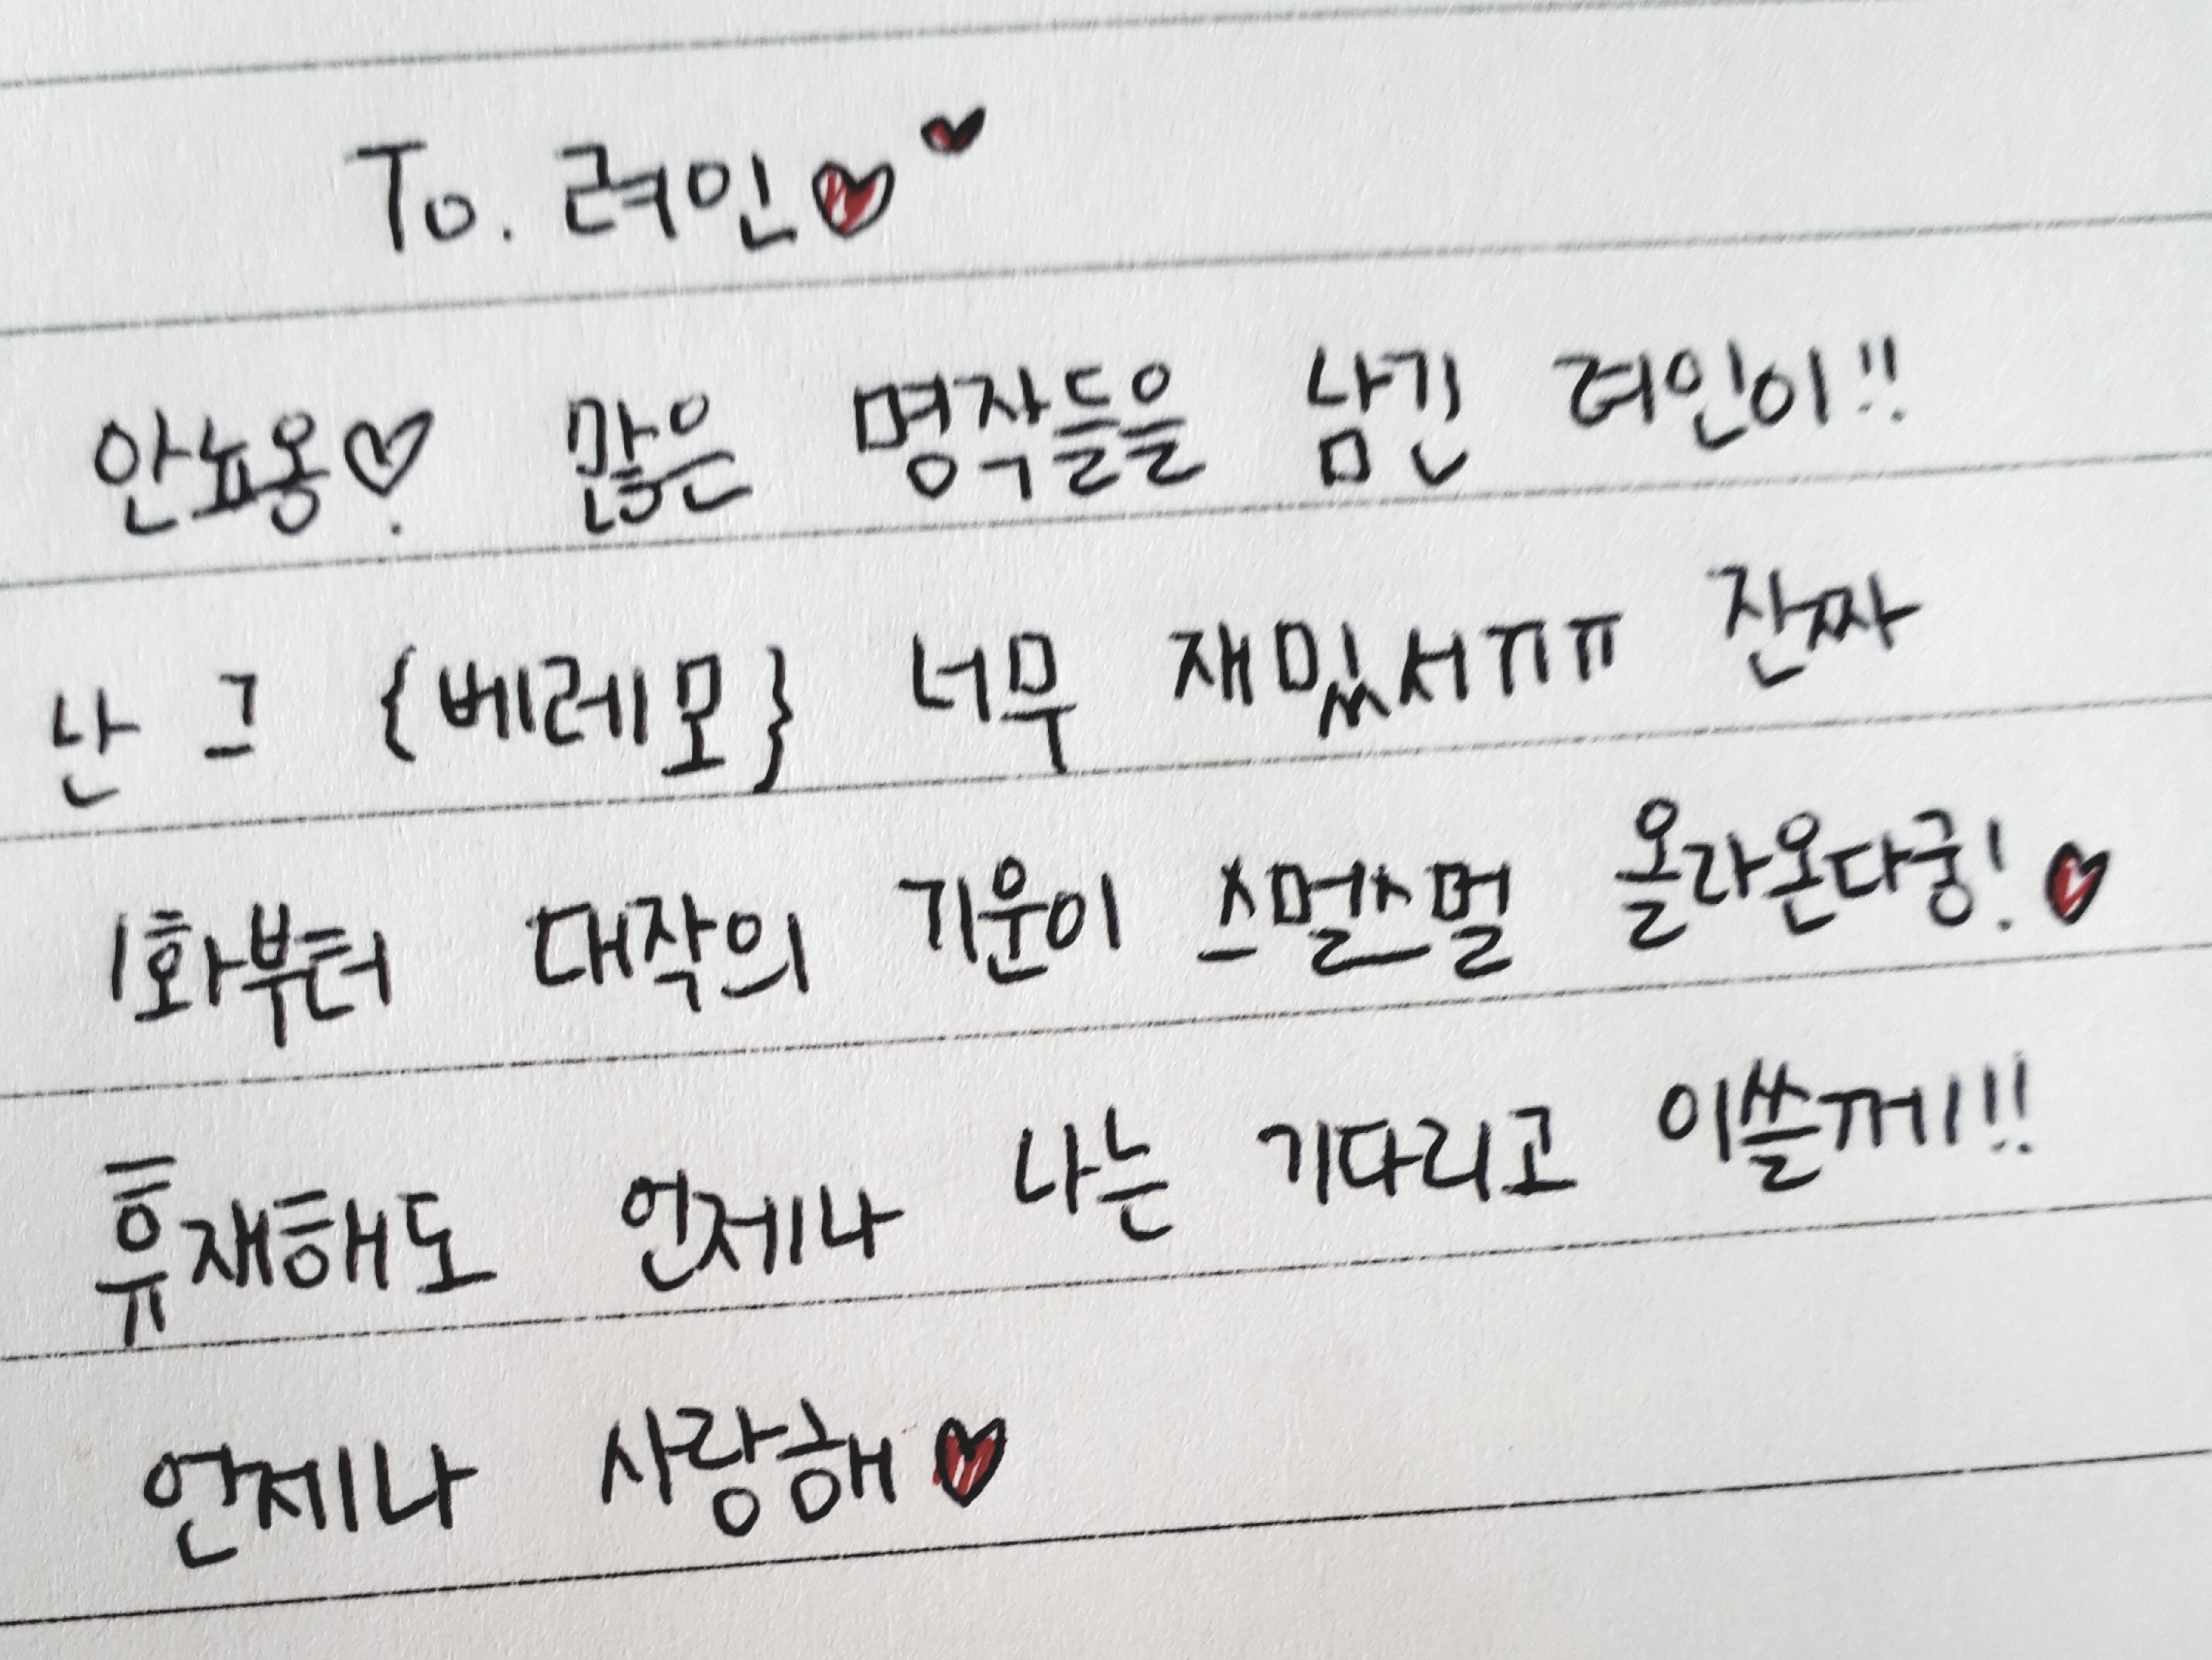 To. 려인♥♥
안뇨옹♡. 많은 명작들을 남긴 려인이!!
난 그 {베레모} 너무 재밌서ㅠㅠㅠ 잔짜
1화부터 대작의 기운이 스멀스멀 올라온다궁! ♥
휴재해도 언제나 나는 기다리고 이쓸께!!
언제나 사랑해♥